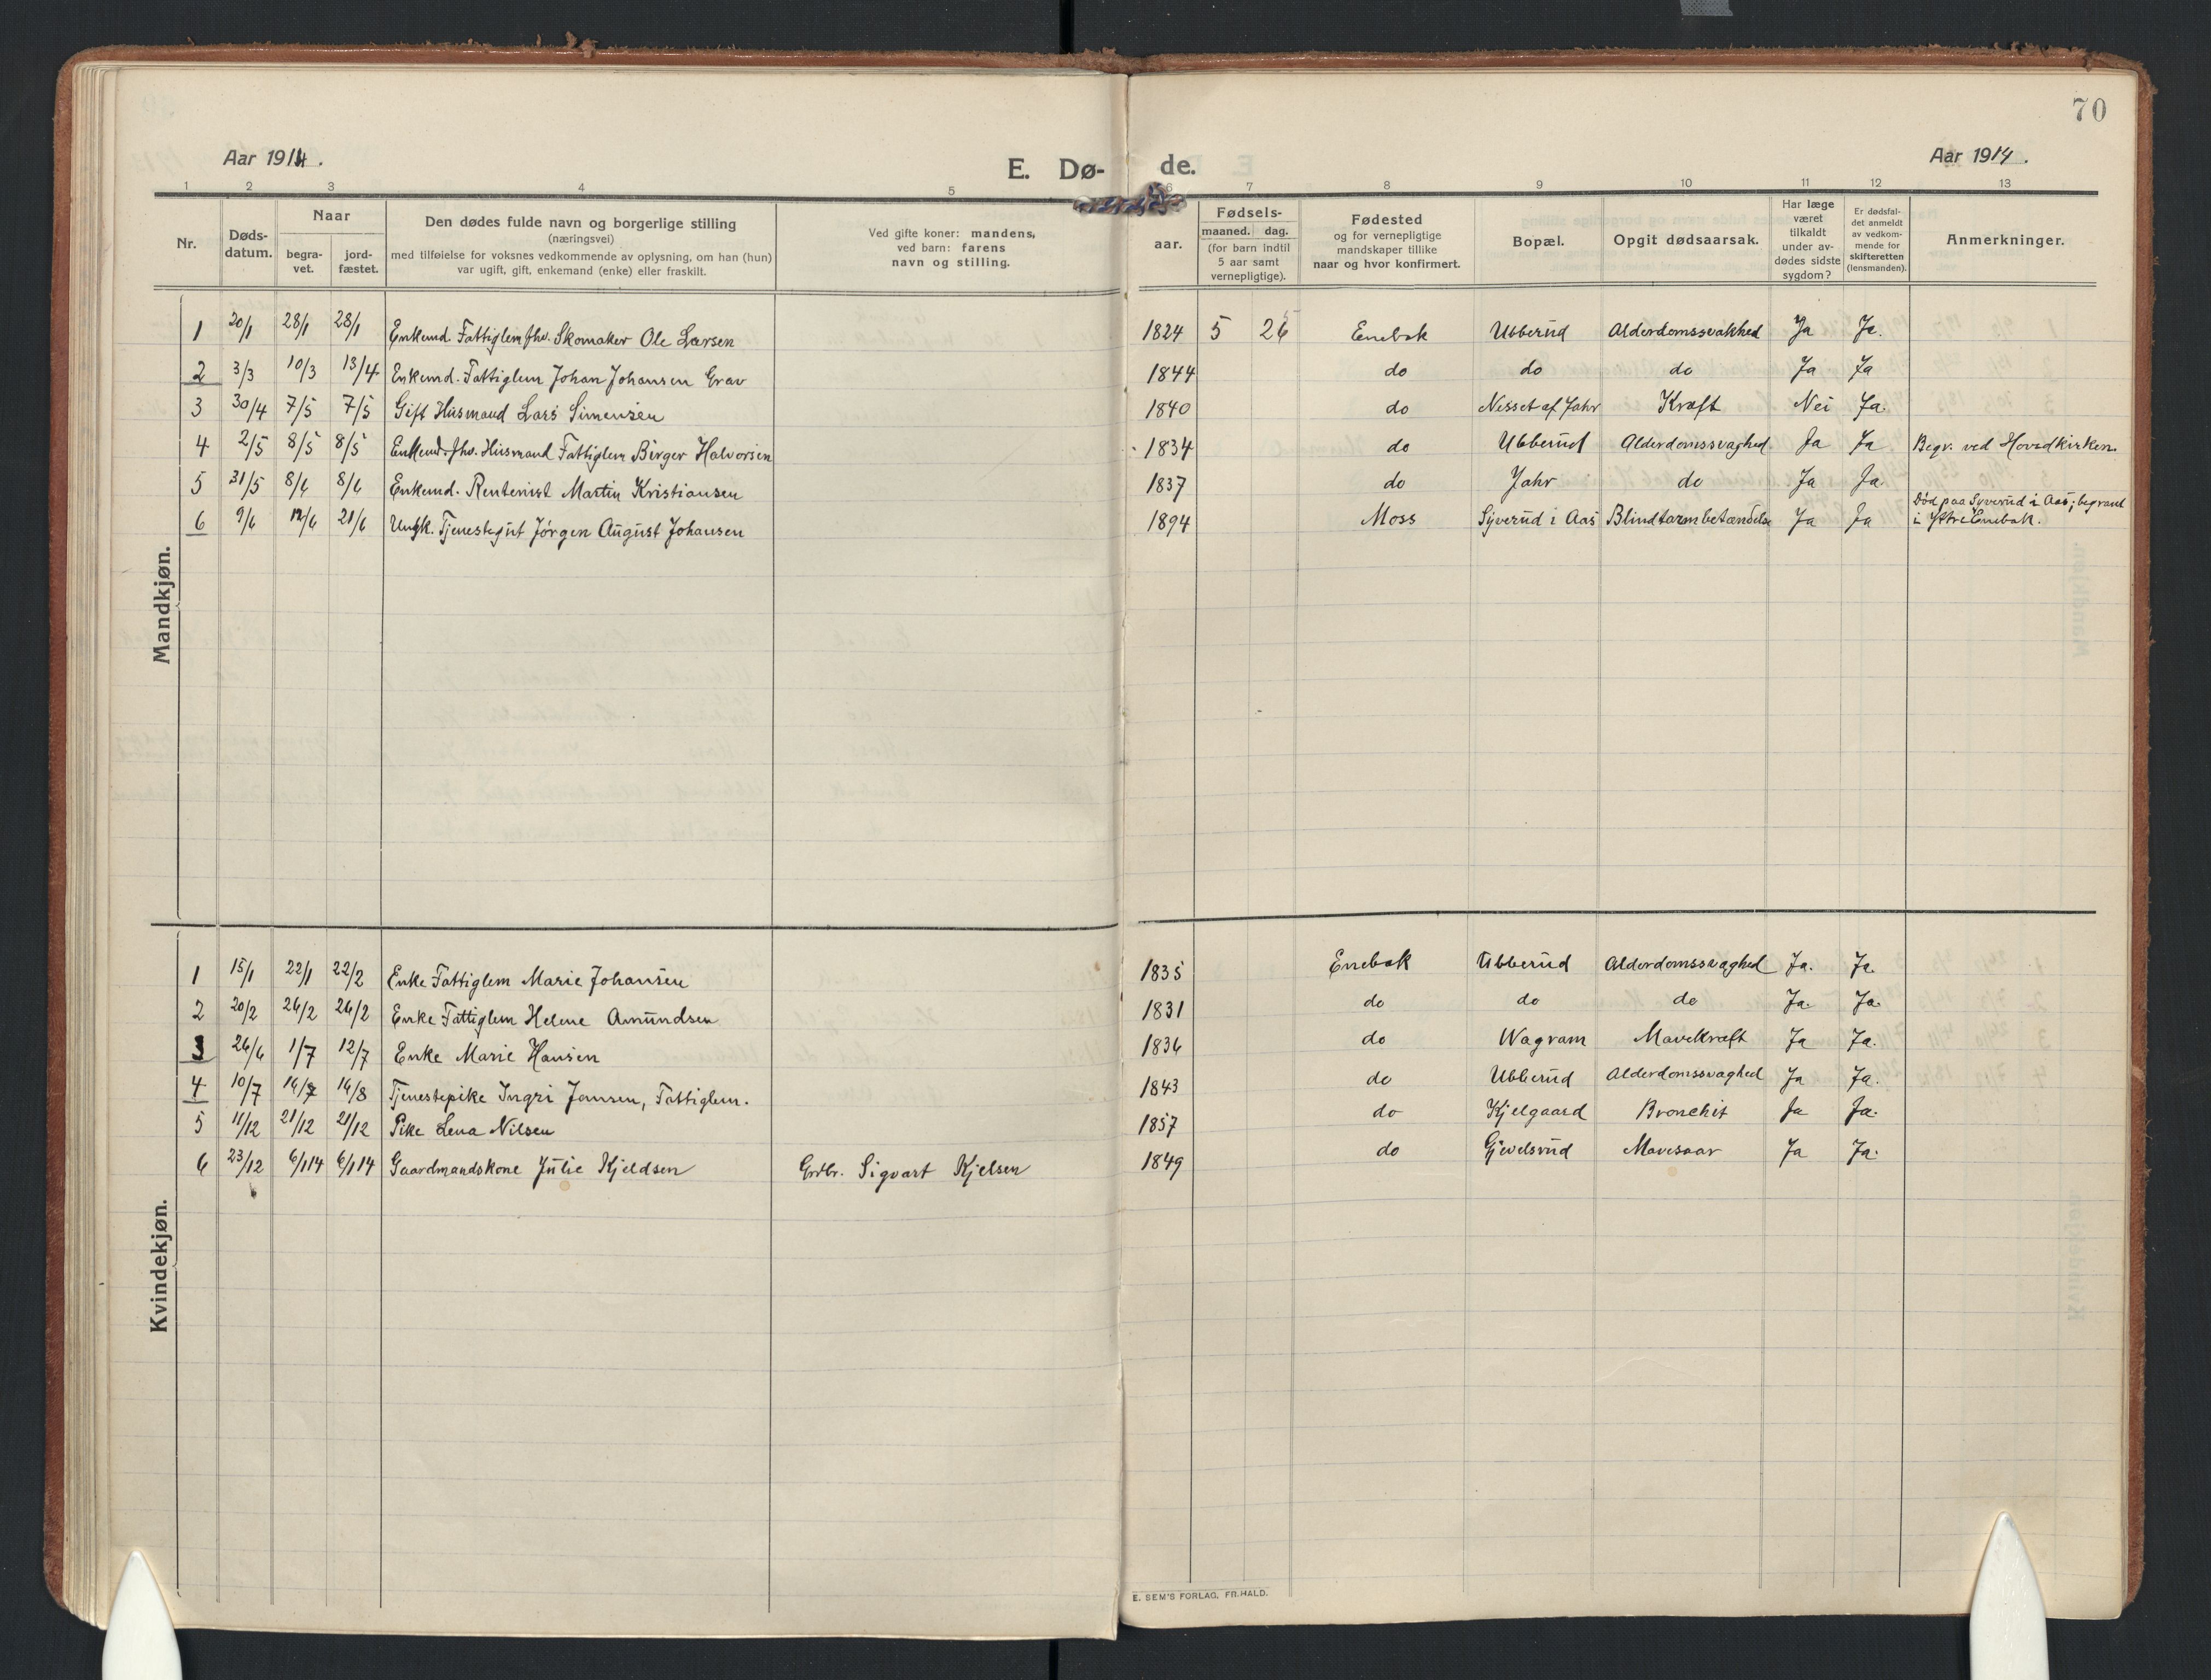 70
Aar 1914.
E. Dø-
de.
Aar 1914.
1 2 3 4 5 6 7 8 9 10 11 12 13
Nr.
Døds-
datum.
Naar
begra-
vet.
jord-
fæstet.
Den dødes fulde navn og borgerlige stilling
(næringsvei)
med tilføielse for voksnes vedkommende av oplysning, om han (hun)
var ugift, gift, enkemand (enke) eller fraskilt.
Ved gifte koner: mandens,
ved barn: farens
navn og stilling.
aar.
Fødsels-
maaned. dag.
(for barn indtil
5 aar samt
vernepligtige).
Fødested
og for vernepligtige
mandskaper tillike
naar og hvor konfirmert.
Bopæl.
Opgit dødsaarsak.
Har læge
været
tilkaldt
under av-
dødes sidste
sygdom?
Er dødsfal-
det anmeldt
av vedkom-
mende for
skifteretten
(lensmanden).
Anmerkninger.
Mandkjøn.
1 20/1 28/1 28/1 Enkemd. Fattiglem fhv. Skomaker Ole Larsen 1824 5 26 Enebak Ubberud Alderdomssvakhed Ja Ja.
2 3/3 10/3 13/4 Enkemd. Fattiglem Johan Johansen Grav 1844 do do do Ja Ja
3 30/4 7/5 7/5 Gift Husmand Lars Simensen 1840 do Nesset af Jahr Kræft Nei Ja.
4 2/5 8/5 8/5 Enkemd. fhv. Husmand Fattiglem Birger Halvorsen 1834 do Ubberud Alderdomssvaghed. Ja Ja Begr. ved Hovedkirken.
5 31/5 8/6 8/6 Enkemd. Rentenist Martin Kristiansen 1837 do Jahr do Ja Ja.
6 9/6 12/6 21/6 Ungk. Tjenestegut Jörgen August Johansen 1894 Moss Syverud i Aas Blindtarmbetændelse Ja Ja Död paa Syverud i Aas; begravet
i Ytre Enebak.
Kvindekjøn.
1 15/1 22/1 22/2 Enke Fattiglem Marie Johansen 1835 Enebak Ubberud Alderdomssvaghed Ja. Ja.
2 20/2 26/2 26/2 Enke Fattiglem Helene Amundsen 1831 do do do Ja. Ja.
3 26/6 1/7 12/7 Enke Marie Hansen 1836 do Wagram Mavekræft Ja Ja.
4 10/7 16/7 16/8 Tjenestepike Ingri Jansen, Fattiglem. 1843 do Ubberud Alderdomssvaghed Ja Ja.
5 11/12 21/12 21/12 Pike Lena Nilsen 1857 do Kjelgaard Bronchit Ja Ja.
6 23/12 6/1 14 6/1 14 Gaardmandskone Julie Kjeldsen Grdbr. Sigvart Kjelsen 1849 do Gjevelsrud Mavesaar Ja Ja.
E. SEM'S FORLAG, FR.HALD.